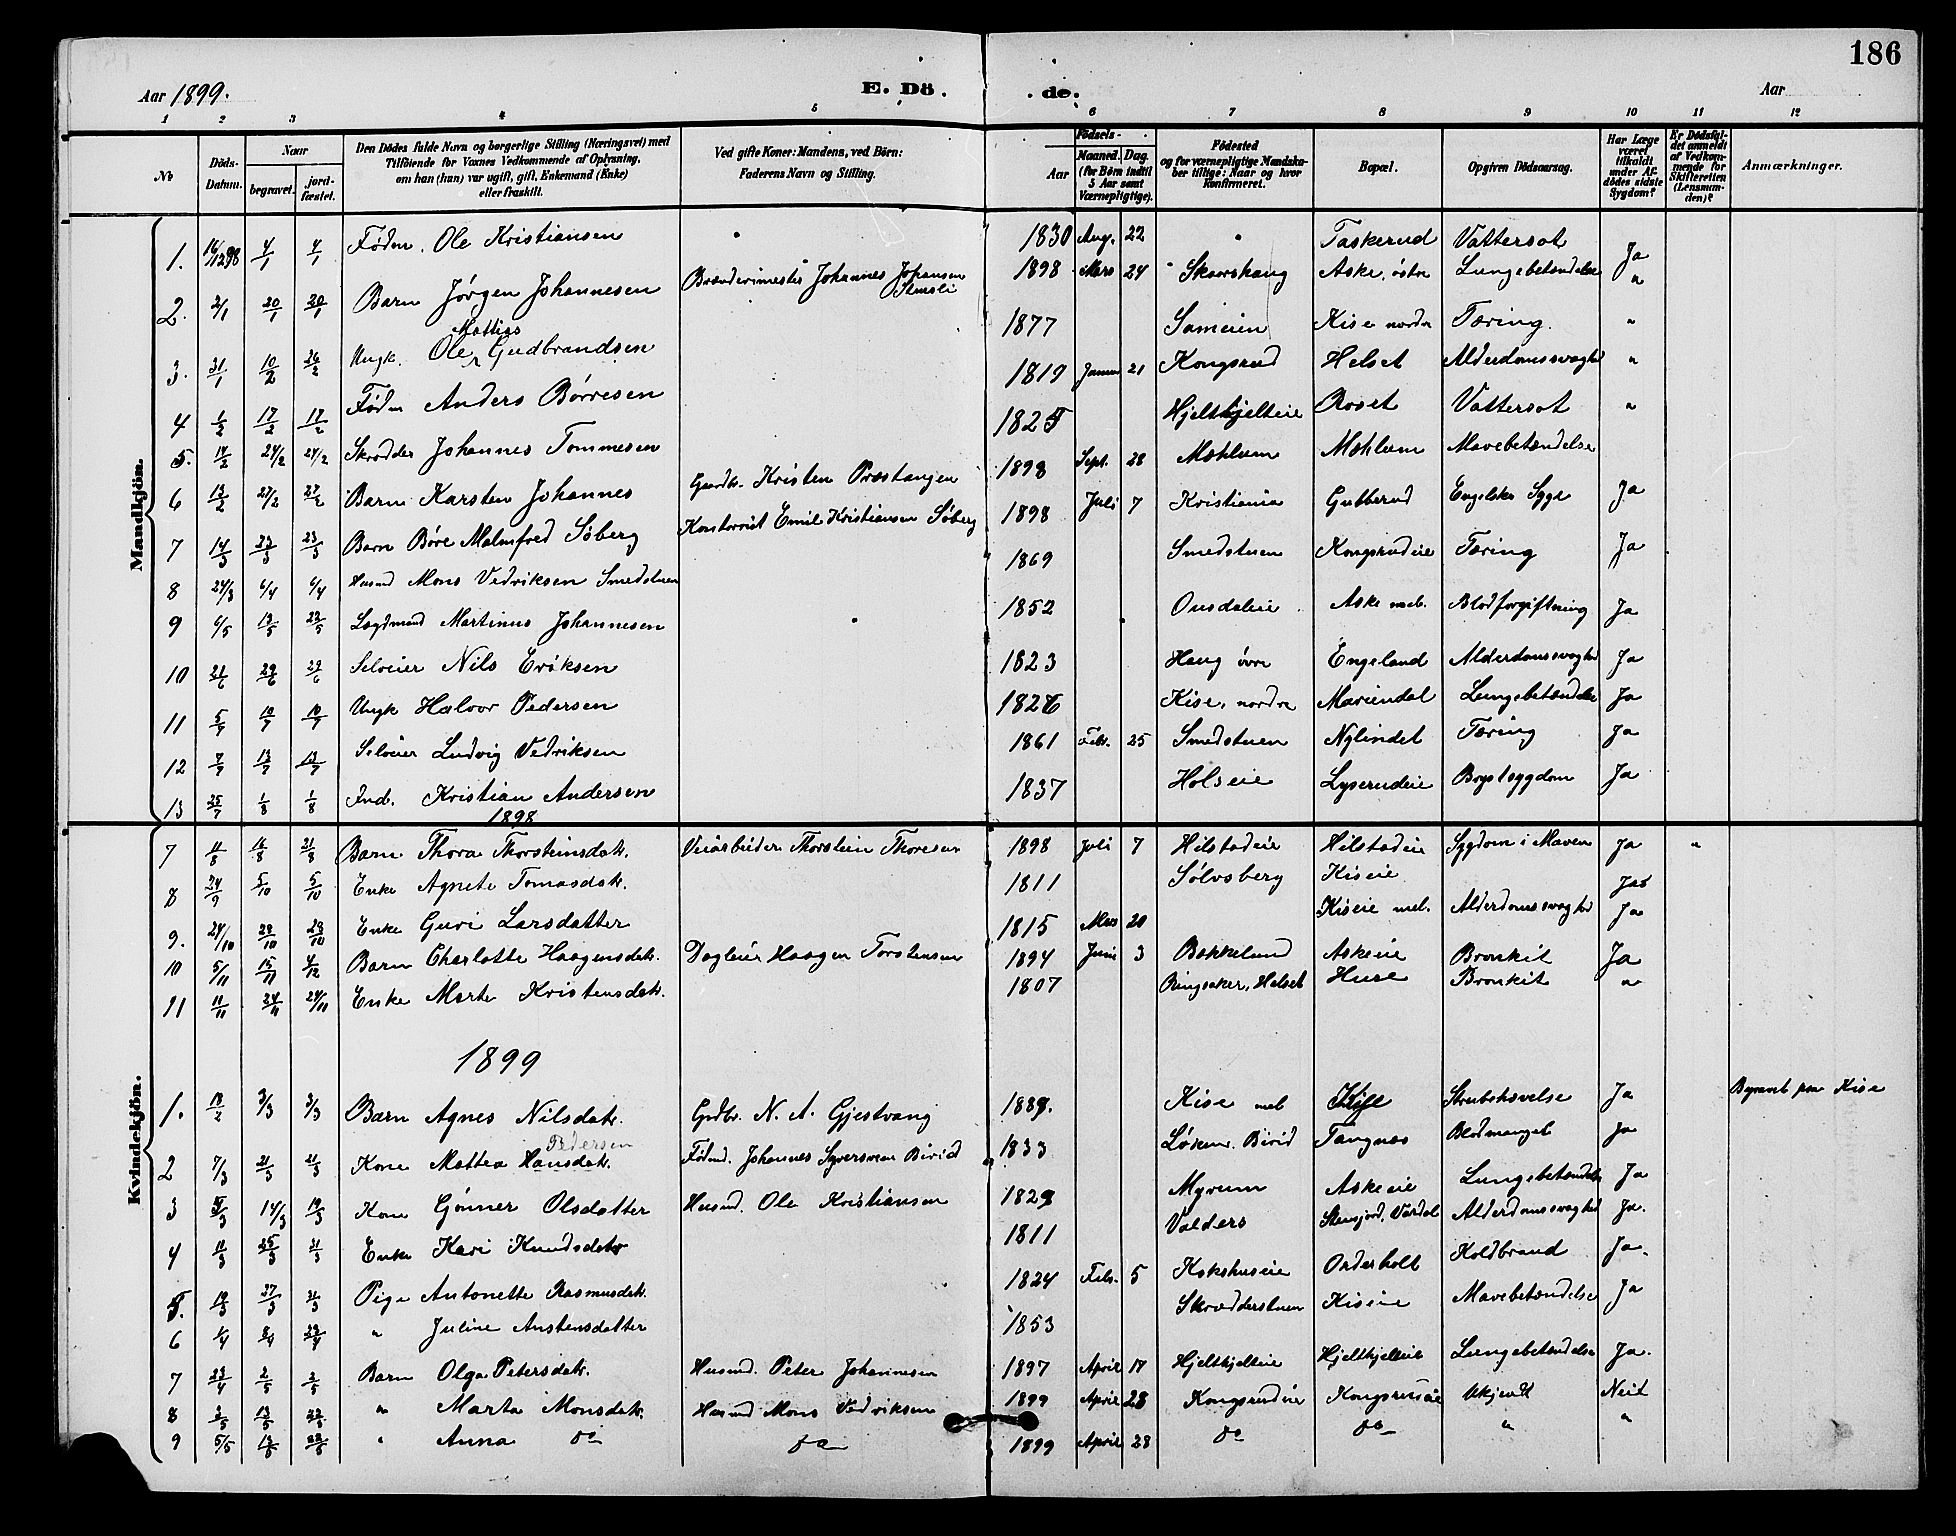 186
Aar 1899. E. Dö de. Aar
1 2 3 4 5 6 7 8 9 10 11 12
No Döds-Datum. Naar begravet. jord-fæstet. Den Dödes fulde Navn og borgerlige Stilling (Næringsvei) med Tilföiende for Voxnes Vedkommende af Oplysning, om han (hun) var ugift, gift, Enkemand (Enke) eller fraskilt. Ved gifte Koner: Mandens, ved Börn: Faderens Navn og Stilling. Födsels- Aar Maaned. Dag. (for Börn indtil 5 Aar samt Værnepligtige). Födested og for værnepligtige Mandskaber tillige: Naar og hvor Konfirmeret. Bopæl. Opgiven Dödsaarsag. Har Læge været tilkaldt under Afdödes sidste Sygdom? Er Dödsfaldet anmeldt af Vedkommende for Skifteretten (Lensmanden)? Anmærkninger.
Mandkjön.
1. 16/12 98 4/1 4/1 Föderr. Ole Kristiansen 1830 Aug. 22 " Taskerud Vattersot Ja
2. 2/1 20/1 20/1 Barn Jörgen Johannesen Brænderimester Johannes Johansen 1898 Mars 24 Skarrshaug Aske, östre Lungebetændelse "
3. 31/1 10/2 26/2 Ungk. Ole Mattias Gudbrandsen 1877 Sameien Kise nordre Tæring. "
4 1/2 17/2 17/2 Föderr Anders Börresen 1819 Januar 21 Kongsrud Helset Alderdomssvaghed "
5. 14/2 24/2 24/2 Skrædder Johannes Tommesen 1825 Hjeltkjelteie Roset Vattersot "
6 13/2 27/2 27/2 Barn Karsten Johannes Gaardbr. Kristen Præstangen 1898 Sept. 28 Mæhlum Mæhlum Mavebetændelse
7 14/3 23/3 23/3 Barn Böre Malmfred Söberg Kontorist Emil Kristiansen Söberg 1898 Juli 7 Kristiania Gubberud Engelske Syge Ja
8 24/3 6/4 6/4 Husmd Mons Vedriksen Smedstuen 1869 Smedstuen Kongsrudeie Tæring Ja
9 6/5 13/5 23/5 Lægdmand Martinus Johannesen 1852 Onsdaleie Aske mel. Blodforgiftning Ja
10 21/6 29/6 29/6 Selveier Nils Eriksen 1823 Haug övre Engeland Alderdomssvaghed Ja
11 5/7 10/7 10/7 Ungk Halvor Pedersen 1826 Kise, nordre Mariendal Lungebetændelse Ja
12 7/7 13/7 13/7 Selveier Ludvig Vedriksen 1861 Febr. 25 Smedstuen Nylindet Tæring Ja
13 25/7 1/8 1/8 Ind. Kristian Andersen 1837 Holseie Lyserudeie Brystsygdom Ja
Kvindekjön.
1898
7 11/8 16/8 21/8 Barn Thora Thorsteinsdatr. Veiarbeider Thorstein Thoresen 1898 Juli 7 Hilstadeie Hilstadeie Sygdom i Maven Ja "
8 24/9 5/10 5/10 Enke Agnete Tomasdatr. 1811 Sölvsberg Kiseie Ja
9. 24/10 29/10 29/10 Enke Guri Larsdatter 1815 Mars 20 Kiseie mel. Alderdomssvaghed Ja
10 5/11 15/11 4/12 Barn Charlotte Haagensdatr. Dagleier Haagen Torstensen 1894 Juni 3 Bakkelund Askeie Bronkit Ja
11 11/11 24/11 24/11 Enke Marte Kristensdatr. 1807 Ringsaker, Helset Huse Bronkit "
1899
1. 18/2 3/3 3/3 Barn Agnes Nilsdatr. Grdbr. N. A. Gjestvang 1889. Kise mel Kise Strubehovelse Ja Begravet paa Kise
2 7/3 21/3 21/3 Kone Mattea Hansdatr. Pedersen Födmd. Johannes Syversveen Birid 1833 Löken. Birid Tangnæs Blodmangel Ja
3 14/3 19/3 Kone Gönner Olsdatter Husmd. Ole Kristiansen 1829 Myrum Askeie Lungebetændelse Ja
4 11/3 25/3 21/3 Enke Kari Knudsdatr 1811 Valders Stensjord, Vardal Alderdomssvaghed Ja.
5. 19/3 27/3 31/3 Pige Antonette Rasmusdatr. 1824 Febr. 5 Kokshuseie Onderholt Koldbrand Ja.
6 1/4 8/4 23/4 " Juline Anstensdatter 1853 Skrædderstuen Kiseie Mavebetændelse Ja
7 23/4 2/5 2/5 Barn Olga Petersdatr. Husmd. Peter Johannesen 1897 April 17 Hjeltkjelteie Hjeltkjelteie Lungebetændelse Ja.
8 3/5 13/5 23/5 " Marta Monsdatr. Husmd Mons Vedriksen 1899 April 28 Kongsrudeie Kongsrudeie Ukjendt Nei
9 5/5 13/5 23/5 " Anna do do 1899 April 28 do do " "